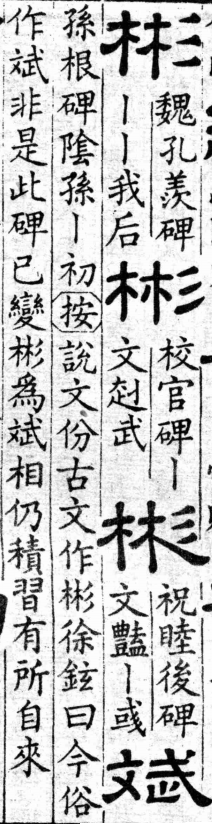 彬魏孔羨碑丨丨我后彬校官碑丨文赳武彬祝睦後碑文豔丨彧斌
孫根碑陰孫丨初按說文份古文作彬徐鉉曰今俗
作斌非是此碑已變彬爲斌相仍積習有所自來